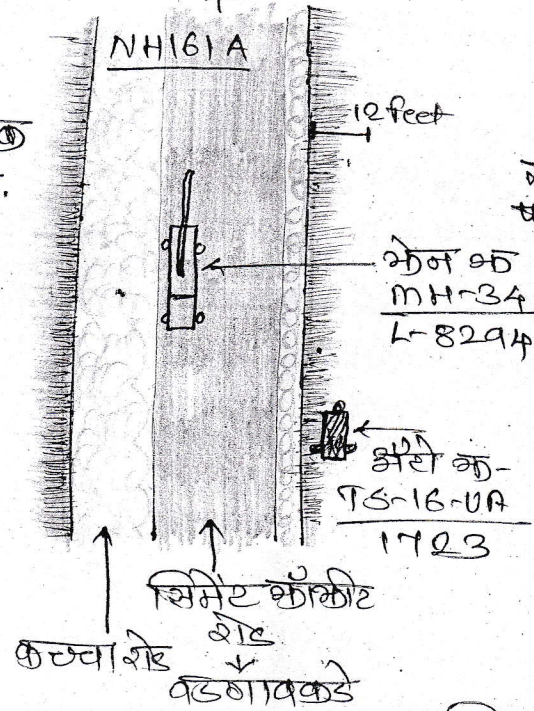 NH161A
12 feet
क्रेन क्र
MH-34
L-8294
ॲटो क्र-
TS-16-UA
1723
सिमेंट काँक्रीट
रोड
कच्चा रोड
वडगावकडे